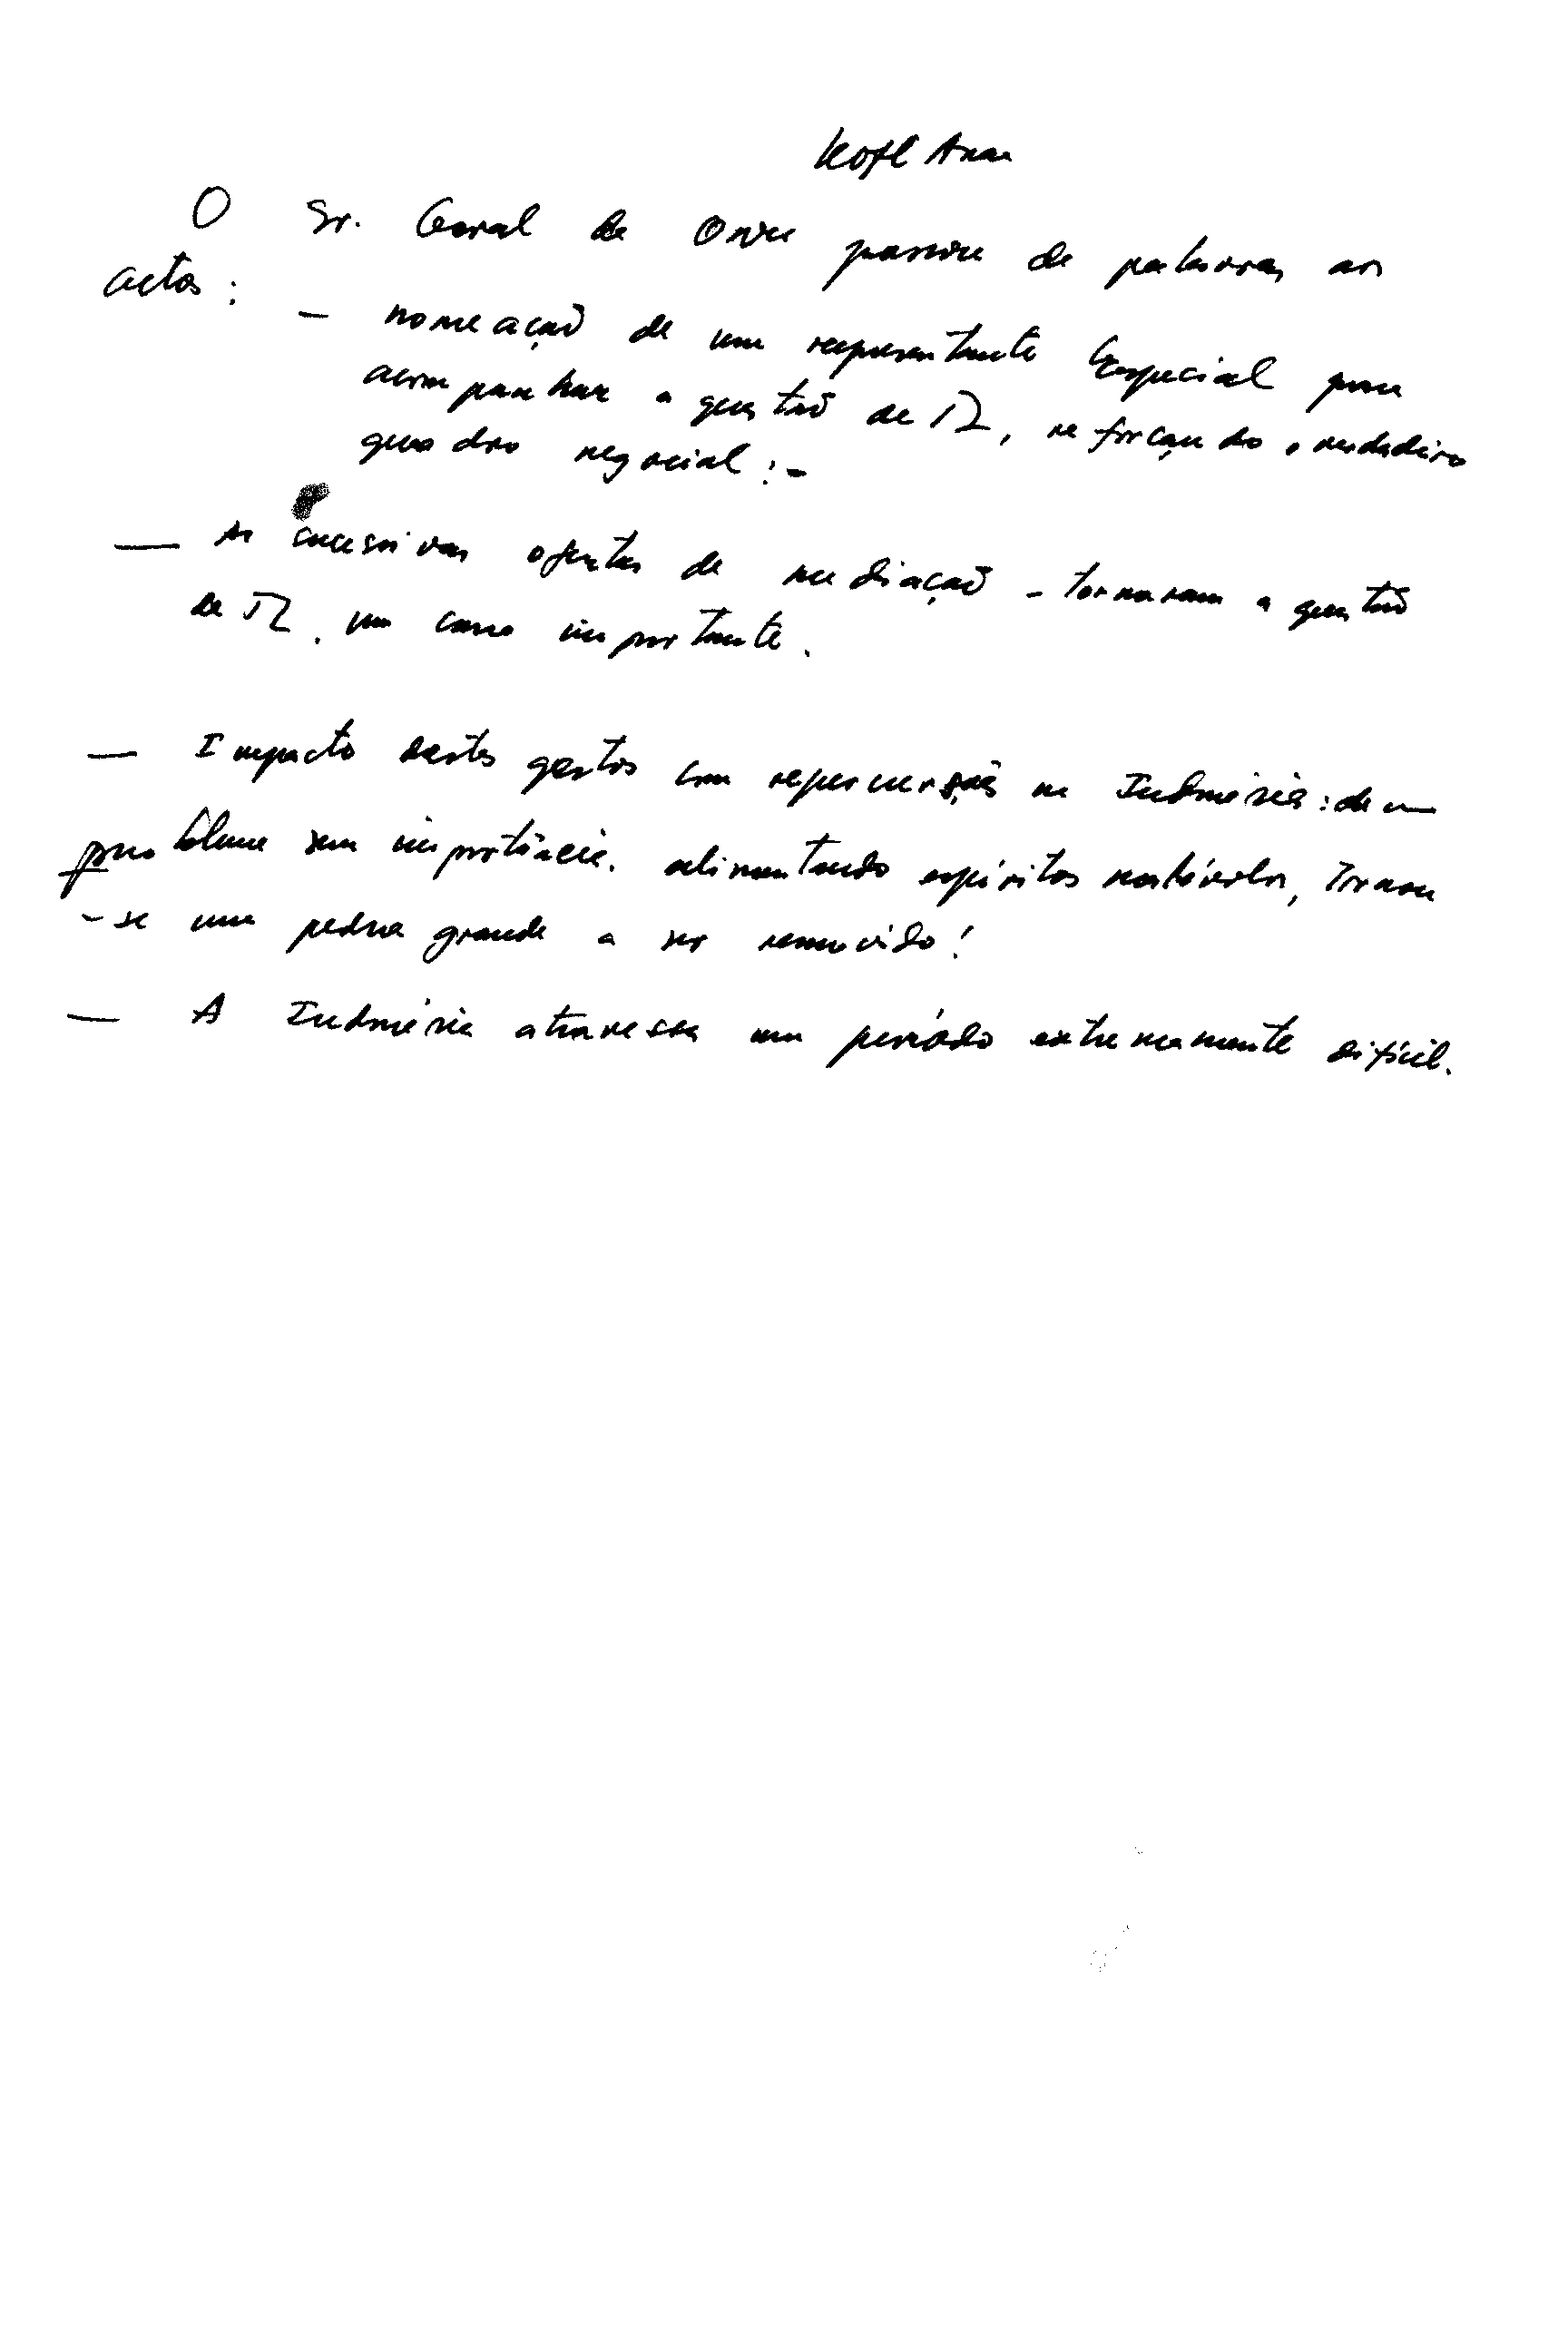 Kofi Anan
O Sr. Geral da ONU passou de palavras aos
actos: - nomeação de um representante Especial para
acompanhar a questão de TL, reforçando o verdadeiro
quadro negocial:-
— As sucessivas ofertas de mediação - tornaram a questão
de TL. um caso importante.
— Impacto destes gestos com repercursões na Indonésia: de um
problema sem importância. alimentando espíritos notáveis, tornou
-se uma pedra grande a ser removido!
— A Indonésia atravessa um período extremamente difícil.